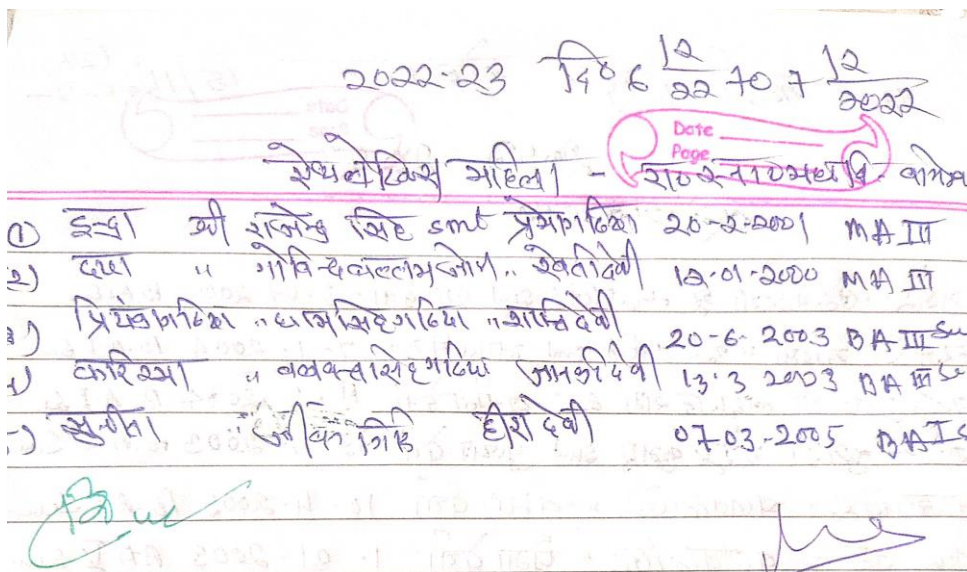 2022-23 दि० 6 12/22 To 7 12/2022
Date
Page
ऐथलेटिक्स महिला - रा० स्ना० महावि०
① इन्द्रा श्री राजेन्द्र सिंह smt प्रेमा गढिया 20-2-2001 MA III
2) दया " गोविन्दबल्लभ जोशी " रेवतीदेवी 12-01-2000 MA III
3) प्रियंका गढिया " धामसिंह गढिया " शान्तिदेवी 20-6-2003 BA III
4) करिश्मा " बलवन्तसिंह गढिया जानकी देवी 13.3 2003 BA III
सुनीता " जीवन गिरि हीरा देवी 07-03-2005 BA I